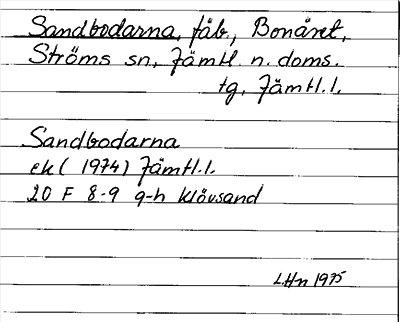 Sandbodarna, fäb., Bonåset,
Ströms sn, Jämtl. n. doms.
tg, Jämtl. l.
Sandbodarna
ek ( 1974) Jämtl. l.
20 F 8-9 g-h Klövsand
LHn 1975